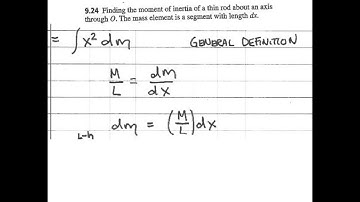 9.24 Finding the moment of inertia of a thin rod about an axis
through O. The mass element is a segment with length dx.
= ∫x² dm GENERAL DEFINITION
M/L = dm/dx
dm = (M/L)dx
L-h